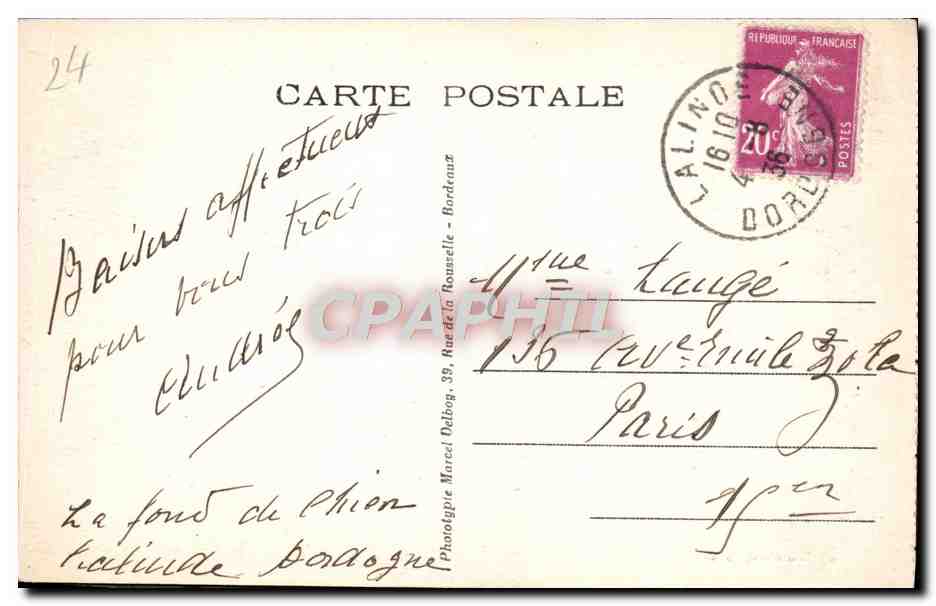 24
CARTE POSTALE
REPUBLIQUE FRANÇAISE
20c
POSTES
LALINDE
16 10
4 8
36
DORDOGNE
Baisers affectueux
pour vous trois
Andrée
La font de Chien
Lalinde Dordogne
Phototypie Marcel Delboy, 39, Rue de la Rousselle - Bordeaux
Mme Laugé
136 Ave Emile Zola
Paris
15em
CPAPHIL